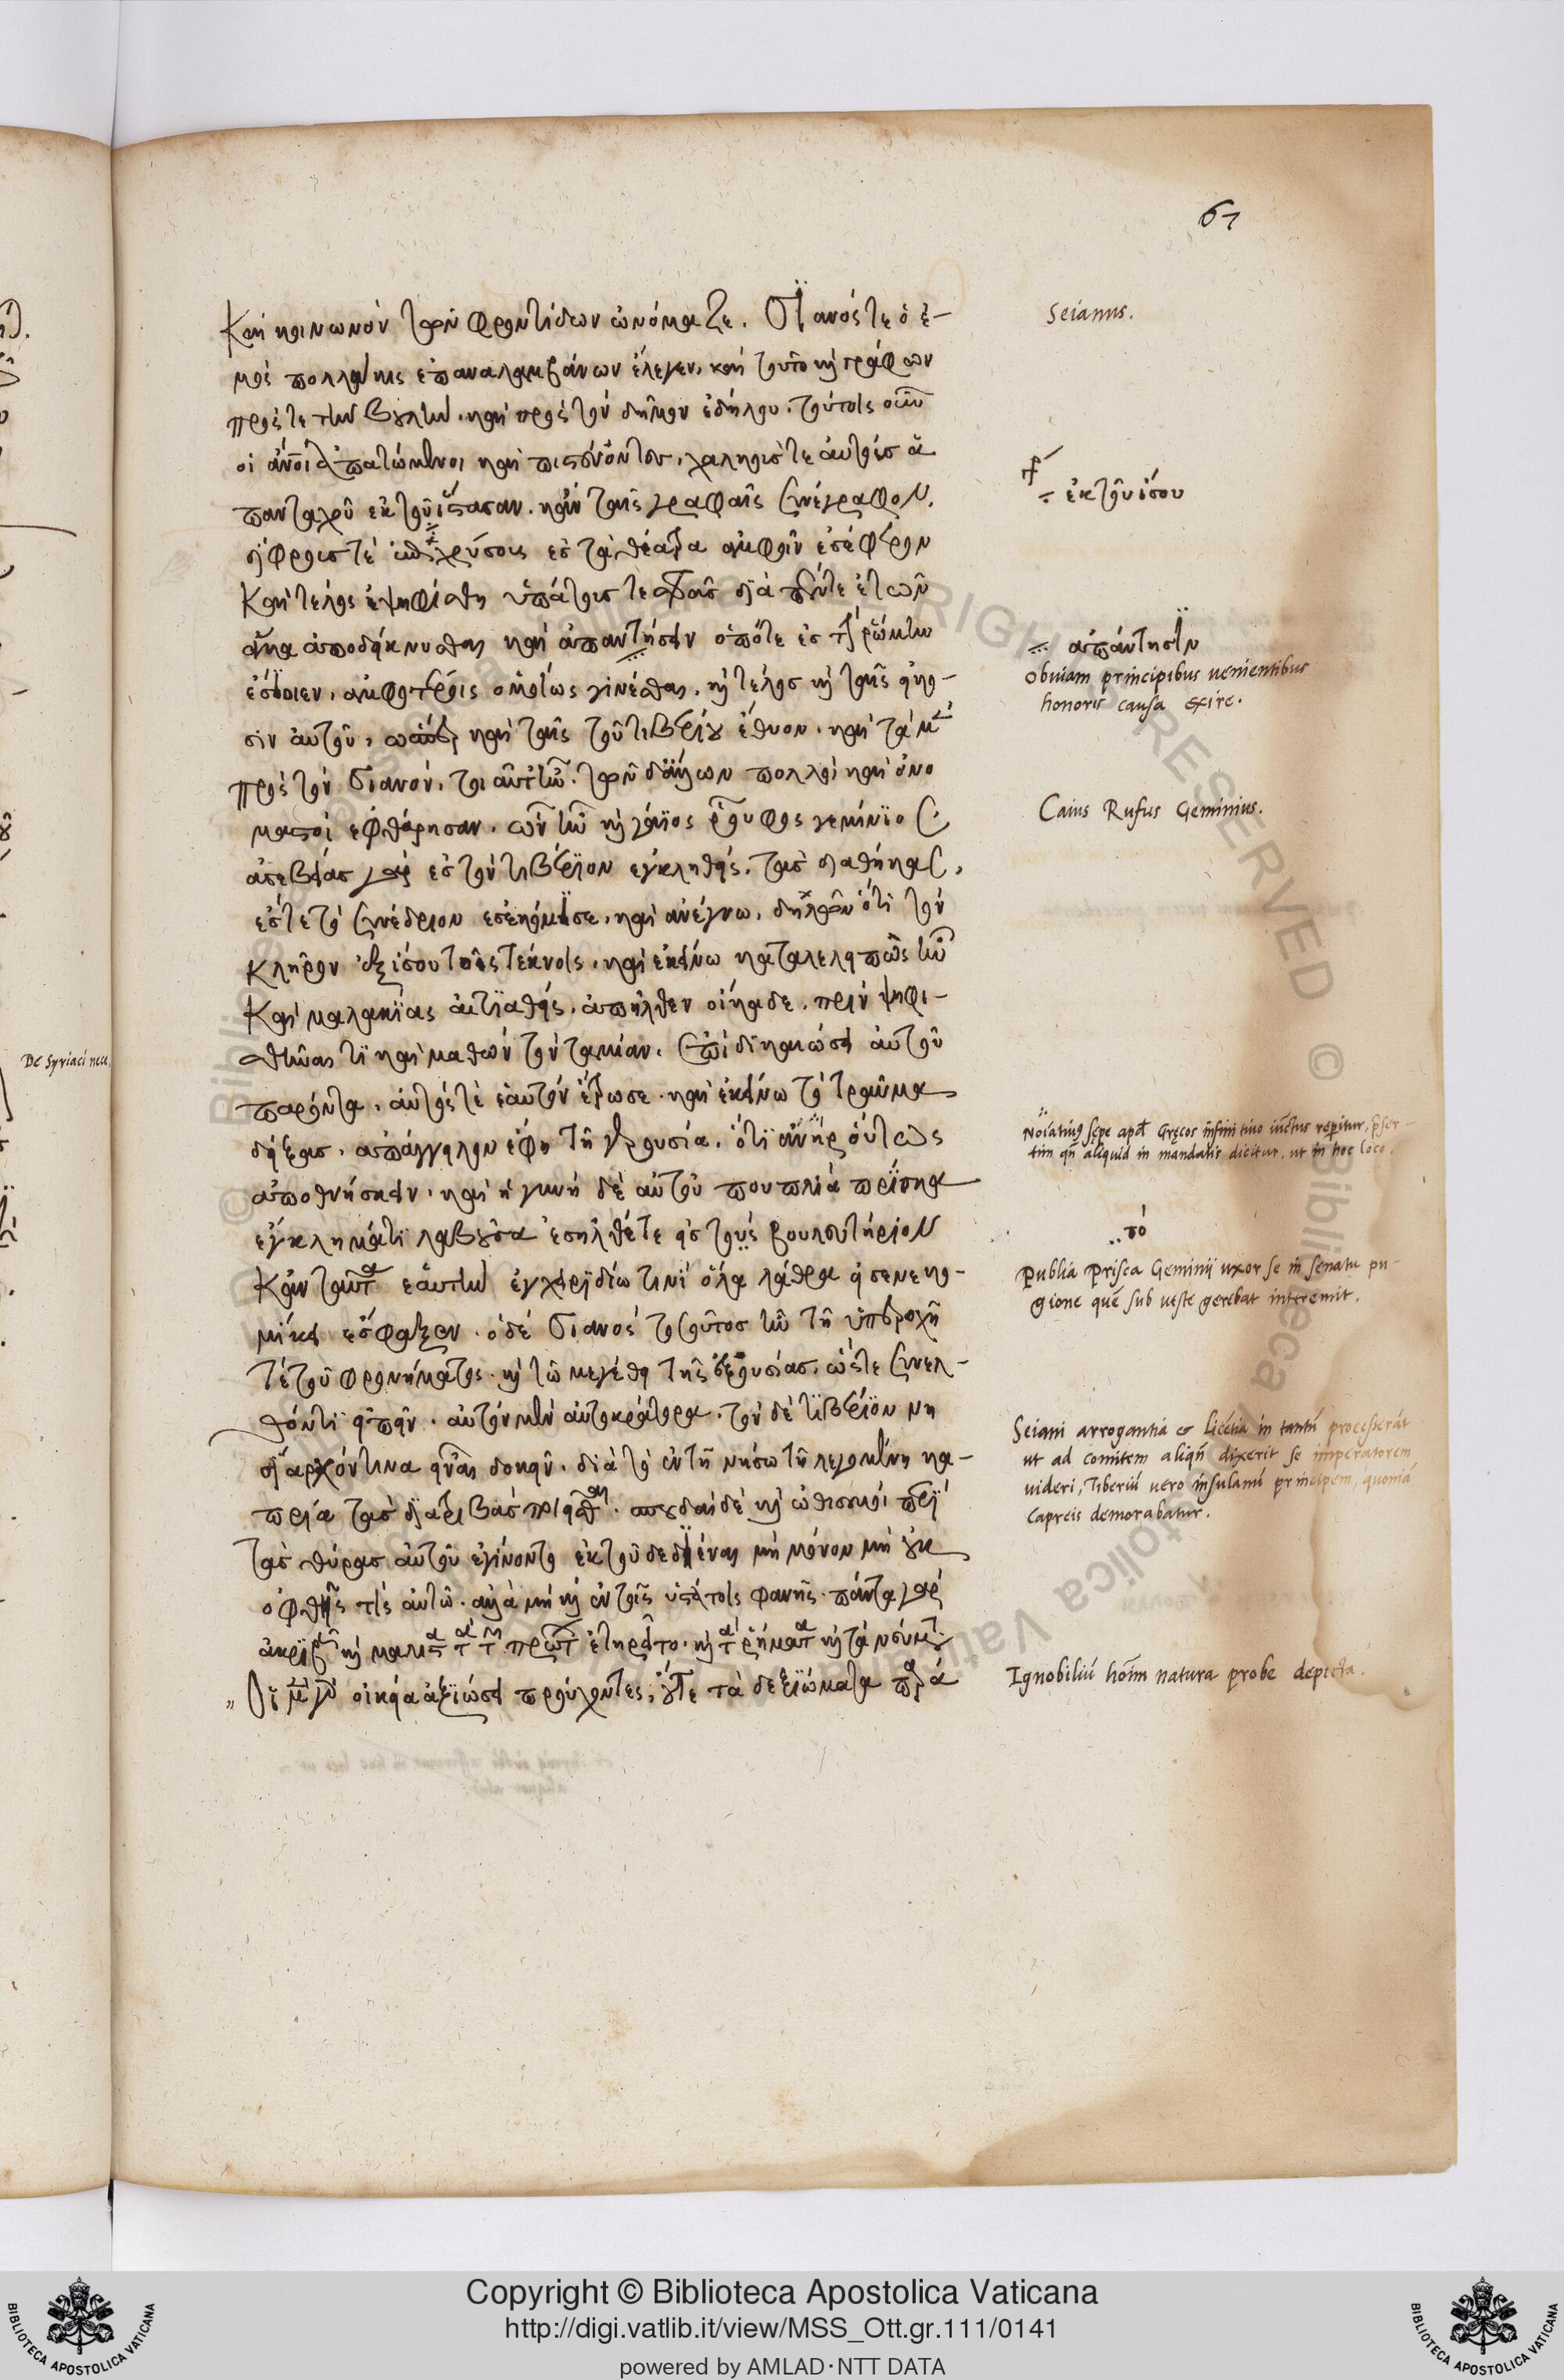 61
Καὶ κοινωνὸν τῶν φροντίδων ὠνόμαζε. Σϊανός τε ὁ ἐ-
μὸς πολλάκις ἐπαναλαμβάνων ἔλεγεν, καὶ τοῦτο καὶ γράφων
πρός τε τὴν βουλὴν. καὶ πρὸς τὸν δῆμον ἐδήλου. τούτοις οὖν
οἱ ἄνοι ἀπατώμενοι καὶ πιστεύοντες, χαλκοῖς τε αὐτοὺς ἁ
πανταχοῦ ἐκ τοῦ ἴστασαν. κἀν ταῖς γραφαῖς συνέγραφον.
δίφρους τὲ ἐπιχρύσους ἐς τὰ θέατρα ἀμφοῖν ἐσέφερον
Καὶ τέλος ἐψηφίσθη ὑπάτους τε αὐτοὺς διὰ πέντε ἐτῶν
ἅμα ἀποδείκνυσθαι καὶ ἀπαντήσειν ὁπότε ἐς τὴν ῥώμην
ἐσίοιεν, ἀμφοτέροις ὁμοίως γίνεσθαι. καὶ τέλος καὶ ταῖς εἰκό-
σιν αὐτοῦ, ὥσπερ καὶ ταῖς τοῦ τιβερίου ἔθυον. καὶ τὰ μὲν
πρὸς τὸν σιανὸν, τοιαῦτ' ἦν. τῶν δὲ ἄλλων πολλοὶ καὶ ὀνο
μαστοὶ ἐφθάρησαν. ὧν ἦν καὶ γάϊος ῥοῦφος γεμίνϊος.
ἀσεβείας γὰρ ἐς τὸν τιβέριον ἐγκληθεὶς. τὰς διαθήκας,
ἐς τε τὸ συνέδριον ἐσεκόμισε, καὶ ἀνέγνω, δηλῶν ὅτι τὸν
κλῆρον ἐξ ἴσου τοῖς τέκνοις, καὶ ἐκείνῳ καταλελοιπὼς ἦν
Καὶ μαλακίας αἰτϊαθεὶς, ἀπῆλθεν οἴκαδε. πρὶν ψηφι-
σθῆναι τϊ καὶ μαθὼν τὸν ταμίαν. ἐπὶ δϊκαιώσει αὐτοῦ
παρόντα, αὐτός τὲ ἑαυτὸν ἔτρωσε. καὶ ἐκείνῳ τὸ τραῦμα
δείξας. ἀπάγγειλον ἔφη τῆ γερουσία. ὅτϊ ἀνὴρ οὕτως
ἀποθνήσκειν. καὶ ἡ γυνὴ δὲ αὐτοῦ πουπλιὰ πρίσκα
ἐγκλημάτϊ λαβοῦσα ἐσῆλθέ τε εἰς τοὺς βουλευτήριον
Κἀν ταῦτα ἑαυτὴν ἐγχειρϊδίω τινϊ ὅλα λάθρα εἰσενεκο-
μίκει ἔσφαξεν. ὁ δὲ σιανὸς τοσοῦτος ἦν τῆ ὑπεροχῆ
τὲ τοῦ φρονήματος. καὶ τῶ μεγέθει τῆς ἐξουσίας, ὥστε συνελ-
θόντϊ εἰπεῖν. αὐτὸν μὲν αὐτοκράτορα. τὸν δὲ τϊβέρϊον νη
σϊαρχόν τινα εἶναι δοκεῖν. διὰ τὸ ἐν τῆ νήσω τῆ λεγομένη κα-
πρία τὰς δϊατριβὰς ποιεῖσθαι. σπουδαὶ δὲ καὶ ὠθισμοὶ περὶ
τὰς θύρας αὐτοῦ ἐγίνοντο ἐκ τοῦ δεδιέναι μὴ μόνον μὴ οὐκ
ὀφθῆς τὶς αὐτῶ. ἀλλὰ μὴ καὶ ἐν τοῖς ὑστάτοις φανῆς. πάντα γὰρ
ἀκριβῶς καὶ μάλιστα τὰ τῶν πρώτων ἐτηρεῖτο. καὶ τὰ ῥήματα καὶ τὰ νεύματα
„ Οἱ μὲν γὰρ οἰκεία ἀξϊώσει προύχοντες, οὔτε τὰ δεξϊώματα παρά
Seianus.
ἐκ τοῦ ἴσου
ἀπάντησϊν
obuiam principibus uenientibus
honoris causa exire.
Caius Rufus Geminius.
De Syriaci nece
Noiatiuus sepe apd' Grecos infinitiuo iunctus reperitur, preser-
tim qn aliquid in mandatis dicitur. ut in hoc loco.
τό
Publia Prisca Geminij uxor se in senatu pu-
gione quem sub ueste gerebat interemit.
Seiani arrogantia et licetia in tantu processerat
ut ad comitem aliqn dixerit se imperatorem
uideri, Tiberiu uero insulanu principem, quoniā
Capreis demorabatur.
Ignobiliu hoim natura probe depicta.
Copyright © Biblioteca Apostolica Vaticana
http://digi.vatlib.it/view/MSS_Ott.gr.111/0141
powered by AMLAD·NTT DATA
BIBLIOTECA APOSTOLICA VATICANA
BIBLIOTECA APOSTOLICA VATICANA